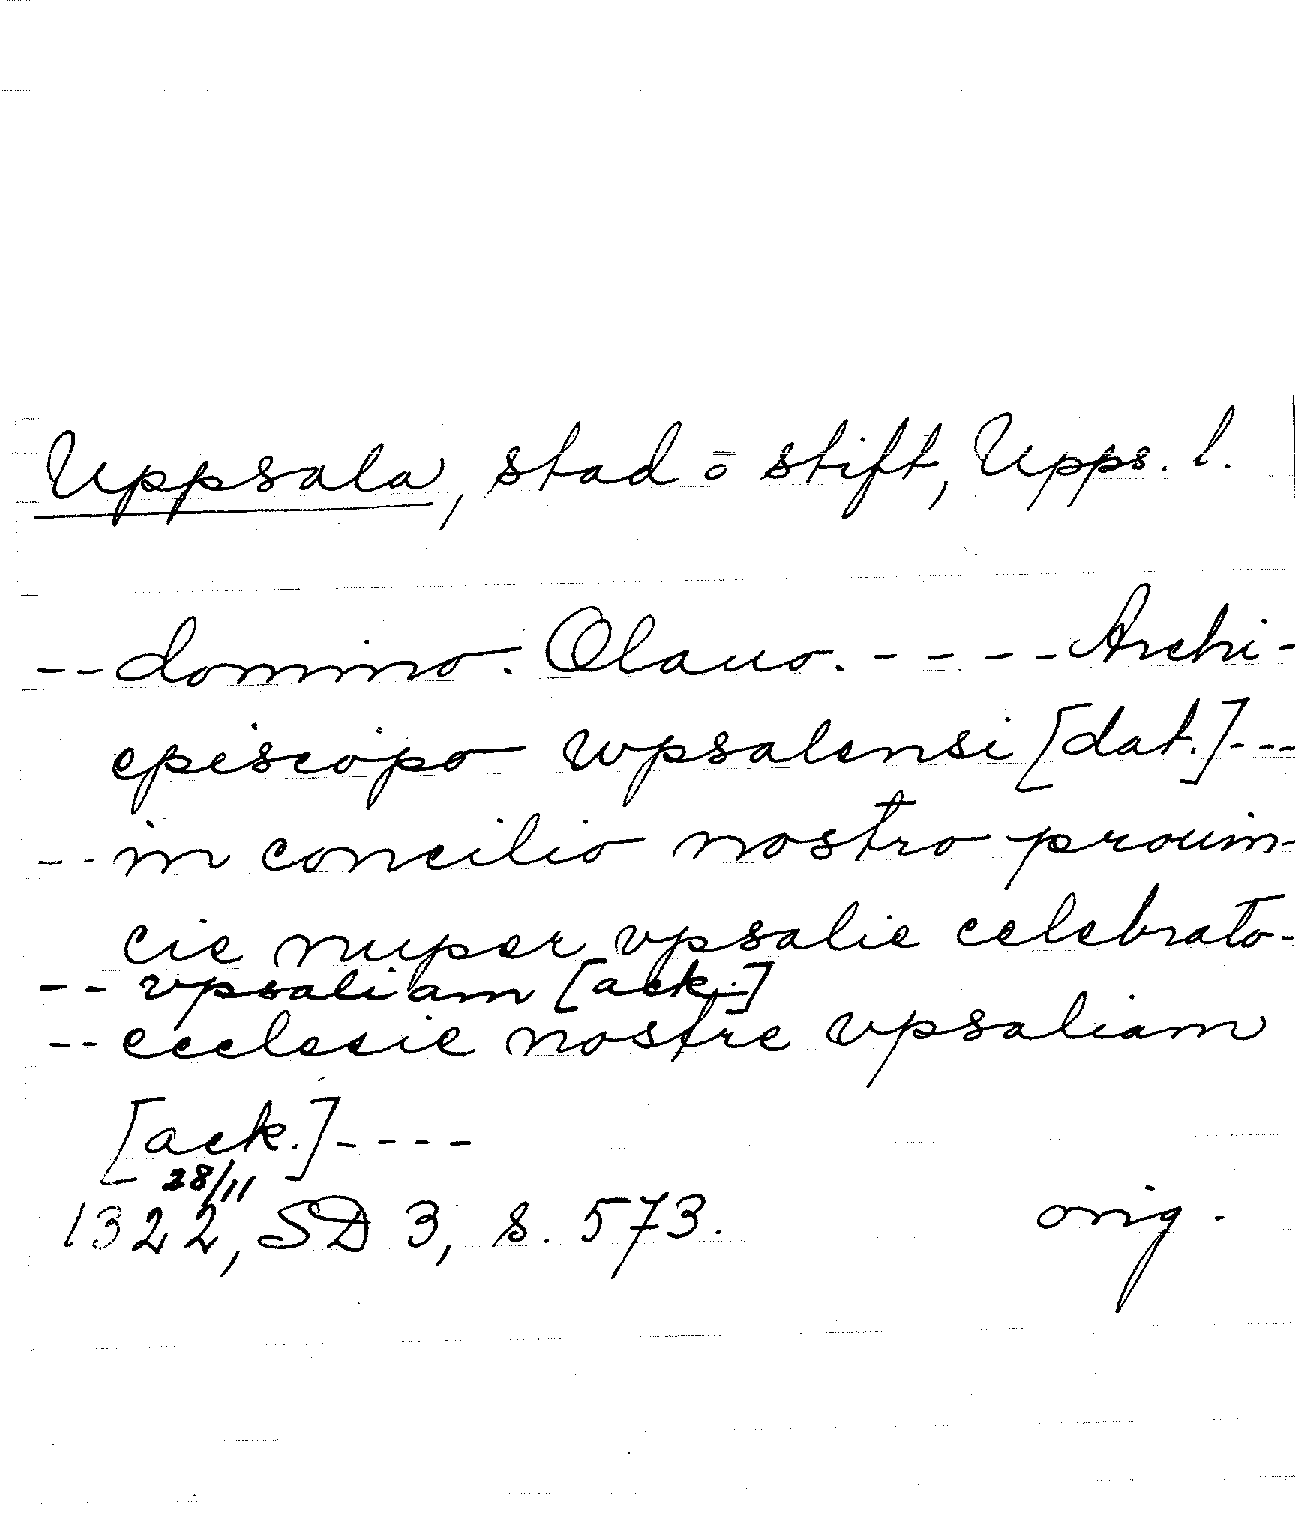 Uppsala, stad o stift, Upps. l.
-- domino. Olauo. ---- Archi-
episcopo wpsalensi [dat.] ---
-- in concilio nostro prouin-
cie nuper vpsalie celebrato-
-- vpsaliam [ack.]
-- ecclesie nostre vpsaliam
[ack.] ----
28/11
1322, SD 3, s. 573. orig.